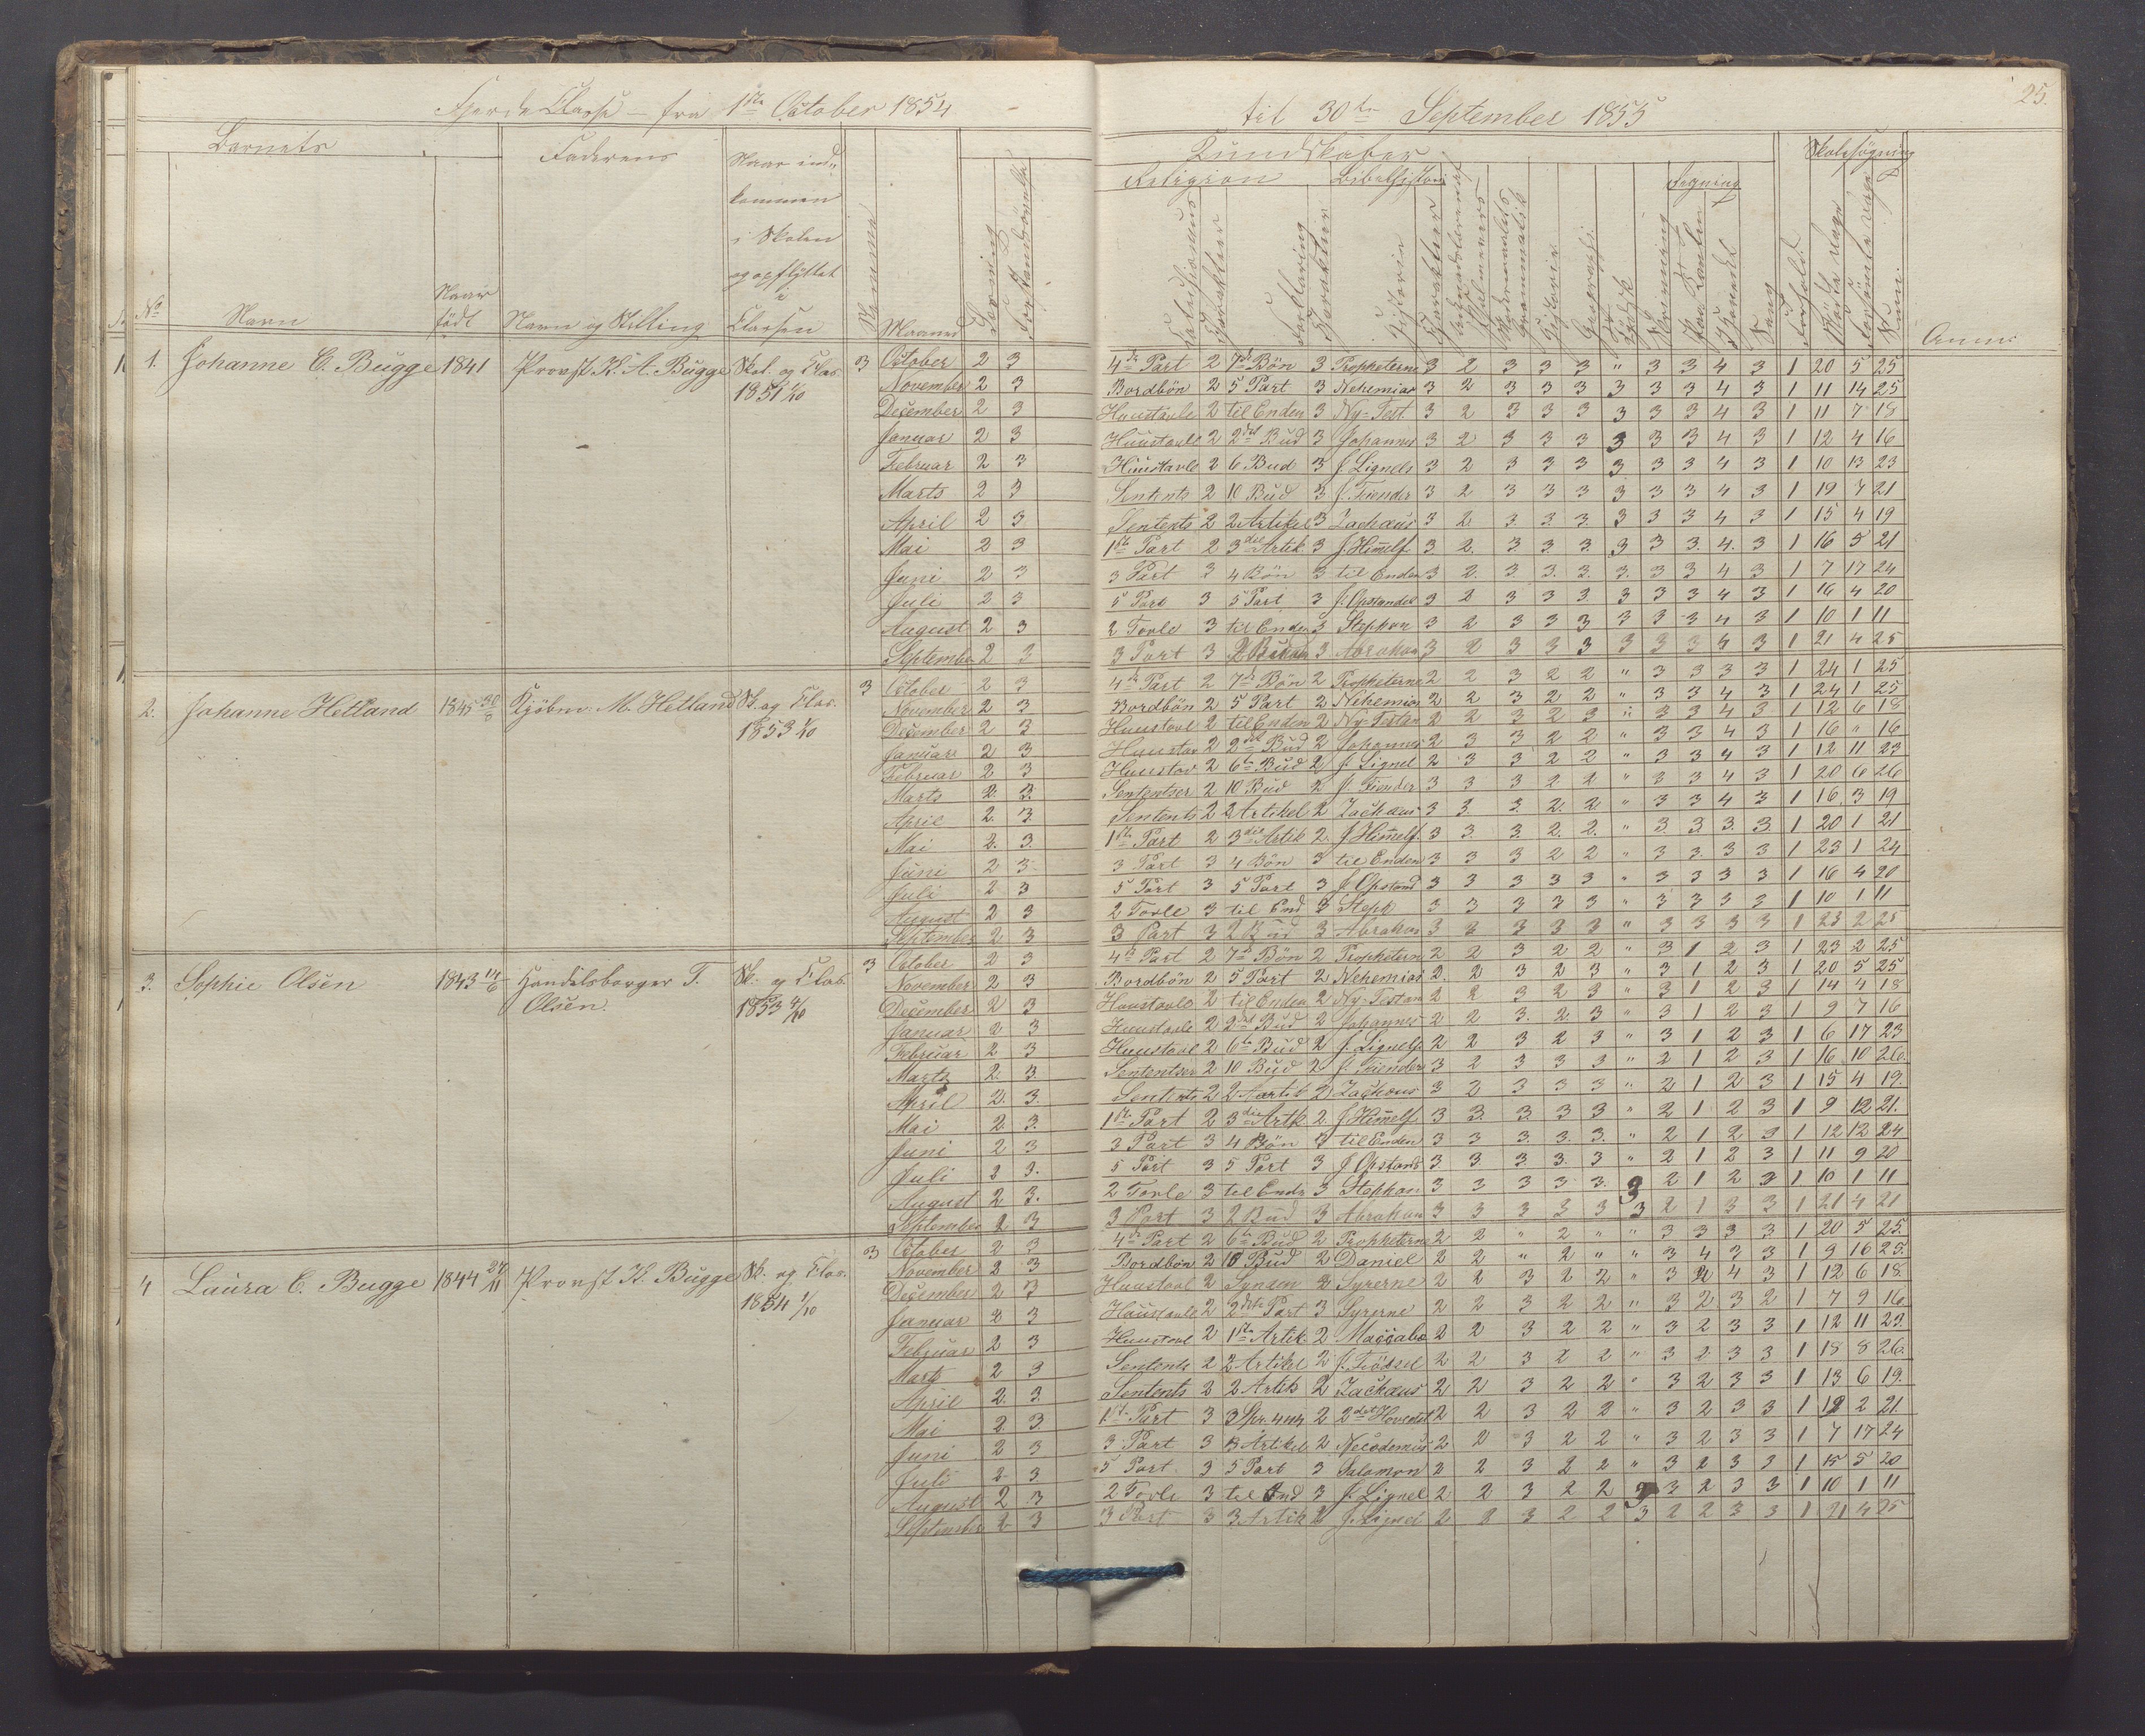 25.
Fjerde Classe – fra 1ste October 1854 til 30te September 1855
Barnets Faderens Naar ind- Kundskaber Skolesøgning
Religion Bibelhistorie Regning
kommen
i Skolen
og opflyttet
i
No Navn Naar født Navn og Stilling Classen Maaned Anm:
1. Johanne C. Bugge 1841 Provst K. A. Bugge Skol. og Clas. 3 October 2 3 4de Part 2 7de Bön 3 Propheterne 3 2 3 3 3 " 3 3 4 3 1 20 5 25
1851 1/10 November 2 3 Bordbön 2 5 Part 3 Nehemias 3 2 3 3 3 3 3 3 4 3 1 11 14 25
December 2 3 Huustavle 2 til Enden 3 Ny-Test. 3 2 3 3 3 3 3 3 4 3 1 11 7 18
Januar 2 3 Huustavle 2 2det Bud 3 Johannes 3 2 3 3 3 3 3 3 4 3 1 12 4 16
Februar 2 3 Huustavle 2 6 Bud 3 J. Lignels 3 2 3 3 3 3 3 3 4 3 1 10 13 23
Marts 2 3 Sentents 2 10 Bud 3 J. Fiender 3 2 3 3 3 3 3 3 4 3 1 19 7 21
April 2 3 Sentents 2 2 Artikel 3 Zachæus 3 2 3. 3. 3. 3 3 3 4 3 1 15 4 19
Mai 2 3 1ste Part 2 3die Artik 3 J. Himelf. 3 2. 3. 3. 3. 3 3 3. 4. 3 1 16 5 21
Juni 2 3 3 Part 3 4 Bön 3 til Enden 3 2. 3. 3. 3. 3. 3 3 4 3 1 7 17 24
Juli 2 3 5 Part 3 5 Part 3 J. Opstandel 3 2 3 3 3 3 3 3 4 3 1 16 4 20
August 2 3 2 Tavle 3 til Enden 3 Stephan 3 2 3 3 3 3 3 3 4 3 1 10 1 11
September 2 3 3 Part 3 2 Bud 3 Abraham 3 2 3 3 3 3 3 3 4 3 1 21 4 25
2. Johanne Hetland 1845 30/8 Kjöbm. M. Hetland Sk. og Clas. 3 October 2 3 4de Part 2 7de Bön 2 Propheterne 2 2 3 2 2 " 3 3 3 3 1 24 1 25
1853 1/10 November 2 3 Bordbön 2 5 Part 2 Nehemias 2 2 3 2 2 " 3 3 4 3 1 24 1 25
December 2 3 Huustavl 2 til Enden 2 Ny-Testam 2 2 3 2 3 " 3 3 4 3 1 12 6 18
Januar 2 3 Huustav 2 2det Bud 2 Johannes 2 3 3 2 2 " 3 3 4 3 1 16 " 16
Februar 2 3 Huustav 2 6te Bud 2 J. Lignel 2 3 3 2 2 " 3 3 4 3 1 12 11 23
Marts 2. 3. Sententser 2 10 Bud 2 J. Fiender 3 3 3 2 2 " 3 3 4 3 1 20 6 26
April 2. 3. Sentents 2 2 Artikel 2 Zachæus 3 3. 3. 2. 2. " 3 3 4 3 1 16 3 19
Mai 2. 3. 1ste Part 2 3die Artik 2. J. Himelf. 3 3. 3. 2. 2. " 3. 3. 3. 3. 1 20 1 21
Juni 2 3 3 Part 3 4 Bön 3 til Enden 3 3 3 2 2 " 3 3. 3 3 1 23 1 24
Juli 2 3 5 Part 3 5 Part 3 J. Opstand 3 3 3 3 3 " 3 3 3 3 1 16 4 20
August 2 3 2 Tavle 3 til End 3 Steph 3 3 3 3 3 " 3 3 3 3 1 10 1 11
September 2 3 3 Part 3 2 Bud 3 Abraham 3 3 3 3 3 " 3 3 3 3 1 23 2 25
3. Sophie Olsen 1843 14/6 Handelsborger T. Sk. og Clas. 3 October 2 3 4de Part 2 7de Bön 2 Propheterne 2 2 3 2 2 " 3 1 2 3 1 23 2 25
Olsen. 1853 4/10 November 2 3 Bordbön 2 5 Part 2 Nehemias 2. 2 3 2 3 " 3 1 2 3 1 20 5 25
December 2 3 Huustavle 2 til Enden 2 Ny-Testam 2 2 3 2 3 " 3 1 2 3 1 14 4 18
Januar 2 3 Huustavle 2 2det Bud 2 Johannes 2 2 3. 2. 3 " 3 1 2 3 1 9 7 16
Februar 2 3 Huustavl 2 6te Bud 2 J. Lignels. 2 2 3 2 3 " 3 1 2 3 1 6 17 23
Marts 2. 3. Sententser 2 10 Bud 2 J. Fiender 3 2 3 3 3 " 2 1 2 3 1 16 10 26.
April 2. 3. Sentents 2 2 Aartik 2 Zachæus 3 2 3 3 3 " 2 1 2 3 1 15 4 19.
Mai 2. 3. 1ste Part 2 3die Artk 2. J. Himelf. 3 3. 3. 3 3 " 2 1 2 3 1 9 12 21.
Juni 2 3 3 Part 3 4 Bön 3 til Enden 3 3 3. 3. 3. " 2 1 2 3 1 12 12 24
Juli 2 3. 5 Part 3 5 Part 3 J. Opstand 3. 3. 3 3. 3 " 2 1 2 3 1 11 9 20
August 2 3. 2 Tavle 3 til Ende 3 Stephan 3 3 3 3 3. 3 2 1 2 3 1 10 1 11
September 2 3 3 Part 3 2 Bud 3 Abraham 3 3 3 3 3 3 2 1 3 3 1 21 4 21
4 Laura C. Bugge 1844 24/11 Provst K. Bugge Sk. og Clas. 3 October 2 3 4de Part 2 6te Bud 2 Propheterne 2 2 " 2 " " 3 3 3 3. 1 20 5 25.
1854 1/10 November 2 3 Bordbön 2 10 Bud 2 Daniel 2 2 " 2 " " 3 4 3 3 1 9 16 25.
December 2 3 Huustavl 2 Synden 2 Syrerne 2 2 3 2 2 " 3 2 4 3 1 12 6 18
Januar 2 3 Huustavle 2 2den Part 3 Syrerne 2 2 3 2 2 " 3 2 3 2 1 7 9 16
Februar 2 3 Huustavl 2 1ste Artik. 2 Maccabæ 2 2 3 2 2 " 3 2 3 3 1 12 11 23.
Marts 2 3 Sentents 2 2 Artikel 2 J. Födsel 2 2 3 2 2 " 3 2 3 3 1 18 8 26.
April 2. 3. Sentents 2 2 Artik 2 Zachæus 2 2 3 2 2 " 3 2 3 3 1 13 6 19.
Mai 2. 3. 1ste Part 3 3 2 2det Hovedst 2 2 3 2 2 " 3 2 3 3 1 19 2 21.
Juni 2 3 3 Part 3 3 Artikel 2 Necodemus 2 2 3 2 2 " 3 2 3 3 1 7 17 24
Juli 2 3 5 Part 3 5 Part 3 Salomon 2 2 3 2 2 " 3 2 3 3 1 15 5 20
August 2 3 2 Tavle 3 til End 3 J. Lignel 2 2 3 2 2 3 3 2 3 3 1 10 1 11
September 2 3 3 Part 3 3 Artik 2 J. Lignel 2 2 3 2 2 3 2 2 3 3 1 21 4 25